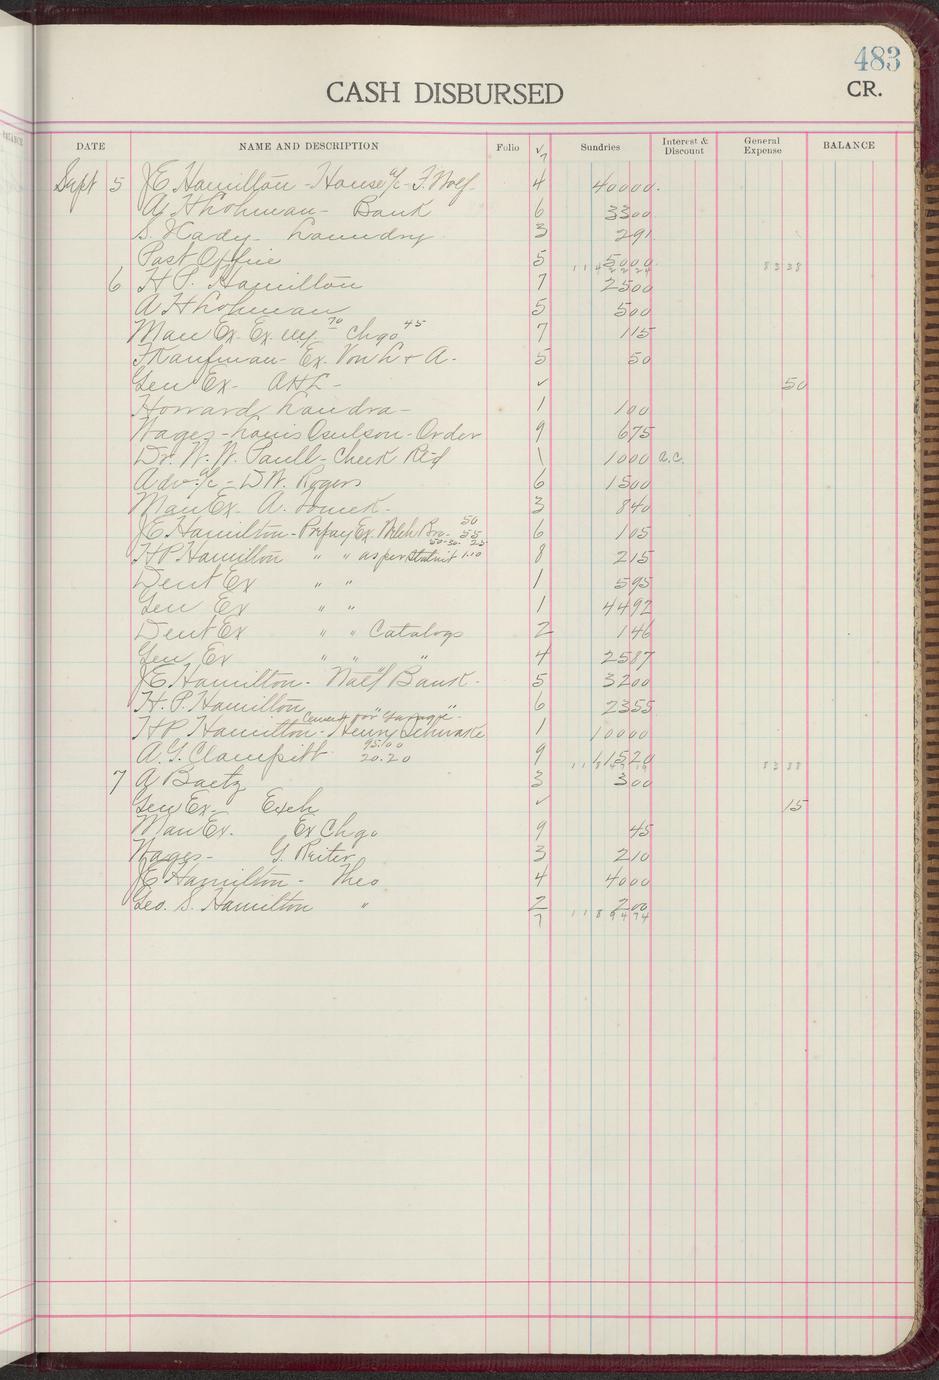 483
CASH DISBURSED CR.
DATE NAME AND DESCRIPTION Folio √ Sundries Interest & Discount General Expense BALANCE
7
Sept 5 J.E. Hamilton - House a/c - F. Wolf 4 40000
A H Lohman - Bank 6 3300
S. Kady - Laundry 3 291
Post Office 5 5000
8338
6 H P. Hamilton 7 2500
A H Lohman 5 500
Man Ex. Ex 70 Chgo 45 7 115
F Kaufman - Ex. Von L & A - 5 50
Gen Ex - AHL - ✓ 50
Howard Landra - 1 100
Wages - Louis Paulson - Order 9 675
Dr. W. W. Paull - Check Ret'd 1 1000 a.c.
Adv a/c - D.W. Rogers 6 1500
Man Ex. A. 3 840
J.E. Hamilton - Prepay Ex. Welch Bro - 50 55 6 105
50-30- 25
H P Hamilton " " as per Statmt 1.10 8 215
Dent Ex " " 1 595
Gen Ex " " 1 4492
Dent Ex " " Catalogs 2 146
Gen Ex " " " 4 2587
J.E. Hamilton - Nat'l Bank - 5 3200
H. P. Hamilton 6 2355
Cement for "Garage" -
H P Hamilton - Henry Schwake 1 10000
A. G. Clampitt 95.00 20.20 9 11520
8388
7 A Baetz 3 300
Gen Ex - Exch ✓ 15
Man Ex. Ex Chgo 9 45
Wages - G. Reiter 3 210
J E Hamilton - Theo 4 4000
Geo. S. Hamilton " 2 200
7 1189474